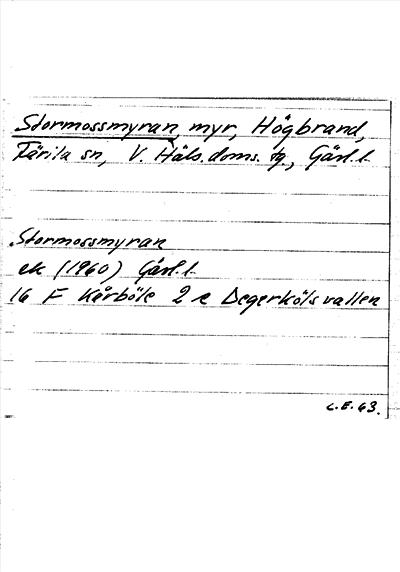 Stormossmyran, myr, Högbrand,
Färila sn, V. Häls. doms. tg., Gävl. l.
Stormossmyran
ek (1960) Gävl. l.
16 F Kårböle 2 e Degerkölsvallen
L.E. 63.